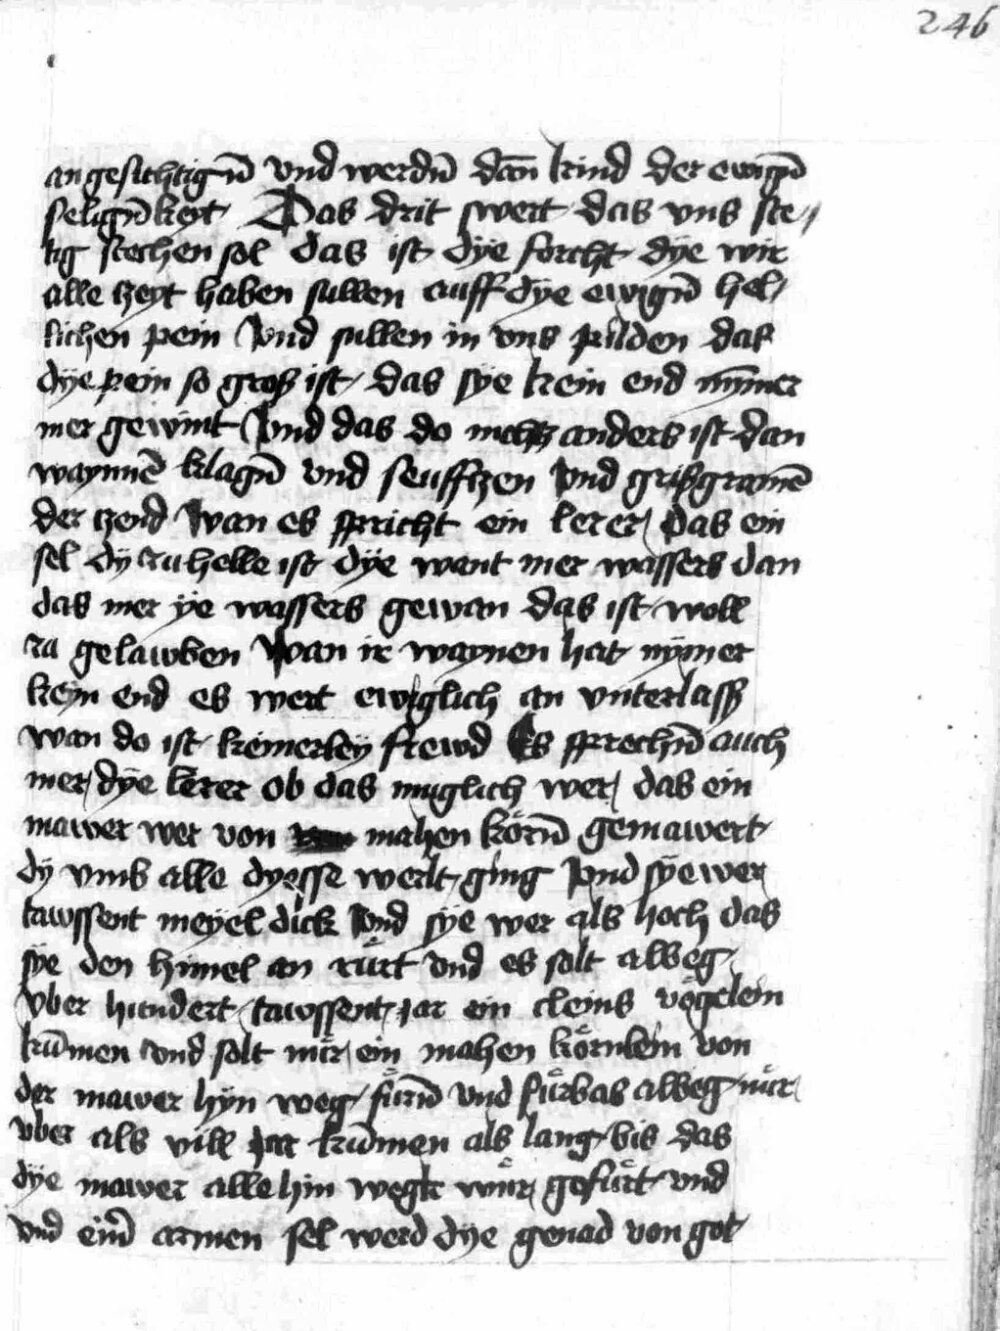 246
an gesichtign̄ vnd werdn̄ dan̄ kind der ewign̄
selign̄keyt Das drit swert das vns ste-
tig stechen sol das ist dÿe forcht dÿe wir
alle tzeyt haben sullen auff dÿe ewign̄ hel-
lichen pein Vnd sullen in vns pilden das
dÿe pein so groß ist das sÿe kein end nym̄er
mer gewint Vnd das do nichtz anders ist dan
waynnē klagn̄ vnd seufftzen Vnd grißgramē
der tzend Wan es spricht ein lerer das ein
sel dÿ zu helle ist dÿe want mer wassers dan
das mer ÿe wassers gewan das ist woll
zu gelawben Wan ir waynen hat nÿmer
keyn end es wert ewiglich an vnterlassz
wan do ist keinerley frewd Es sprechn̄ auch
mer dÿe lerer ob das muglich wer das ein
mawer wer von mahen körn̄ gemawert
dÿ vmb alle dyesse werlt ging Vnd sÿe wer
tawssent meÿel dick Vnd sÿe wer als hoch das
sÿe den himel an rürt vnd es solt alweg
vber hundert tawssent jar ein cleins vögelein
kūmen vnd solt nür ein mahen körnlein von
der mawer hÿn weg fürn̄ vnd fürbas alweg nür
vber als vill Jar kūmen als lang bis das
dÿe mawer alle hin wegk wür gefürt vnd
vnd einē armen sel werd dÿe genad von got